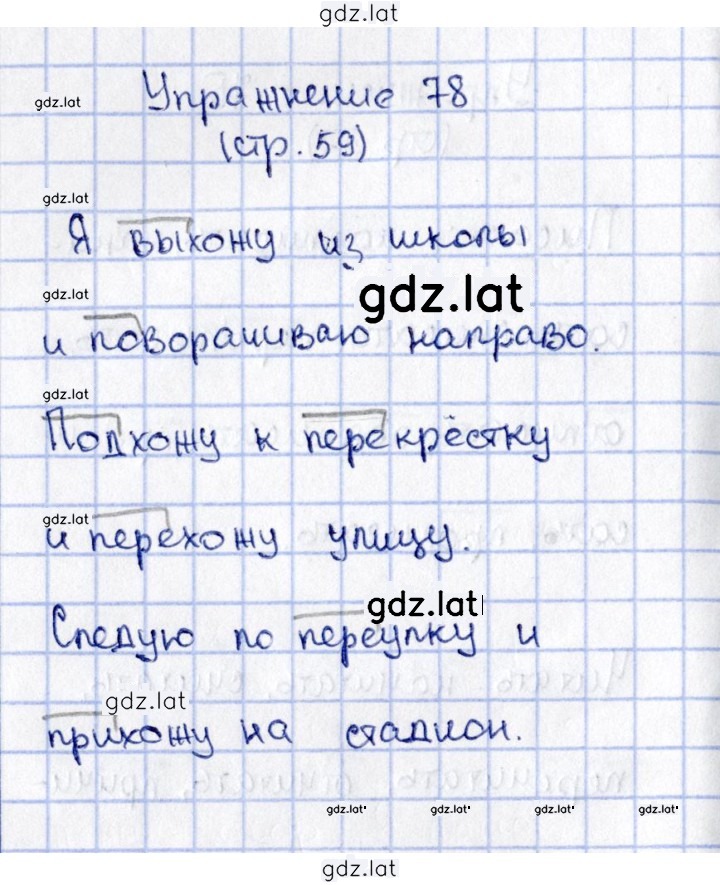 gdz.lat
gdz.lat
Упражнение 78
(стр. 59)
gdz.lat
Я выхожу из школы
gdz.lat
gdz.lat
и поворачиваю направо.
gdz.lat
Подхожу к перекрёстку
gdz.lat
и перехожу улицу.
gdz.lat
Следую по переулку и
gdz.lat
прихожу на стадион.
gdz.lat gdz.lat gdz.lat gdz.lat
gdz.lat